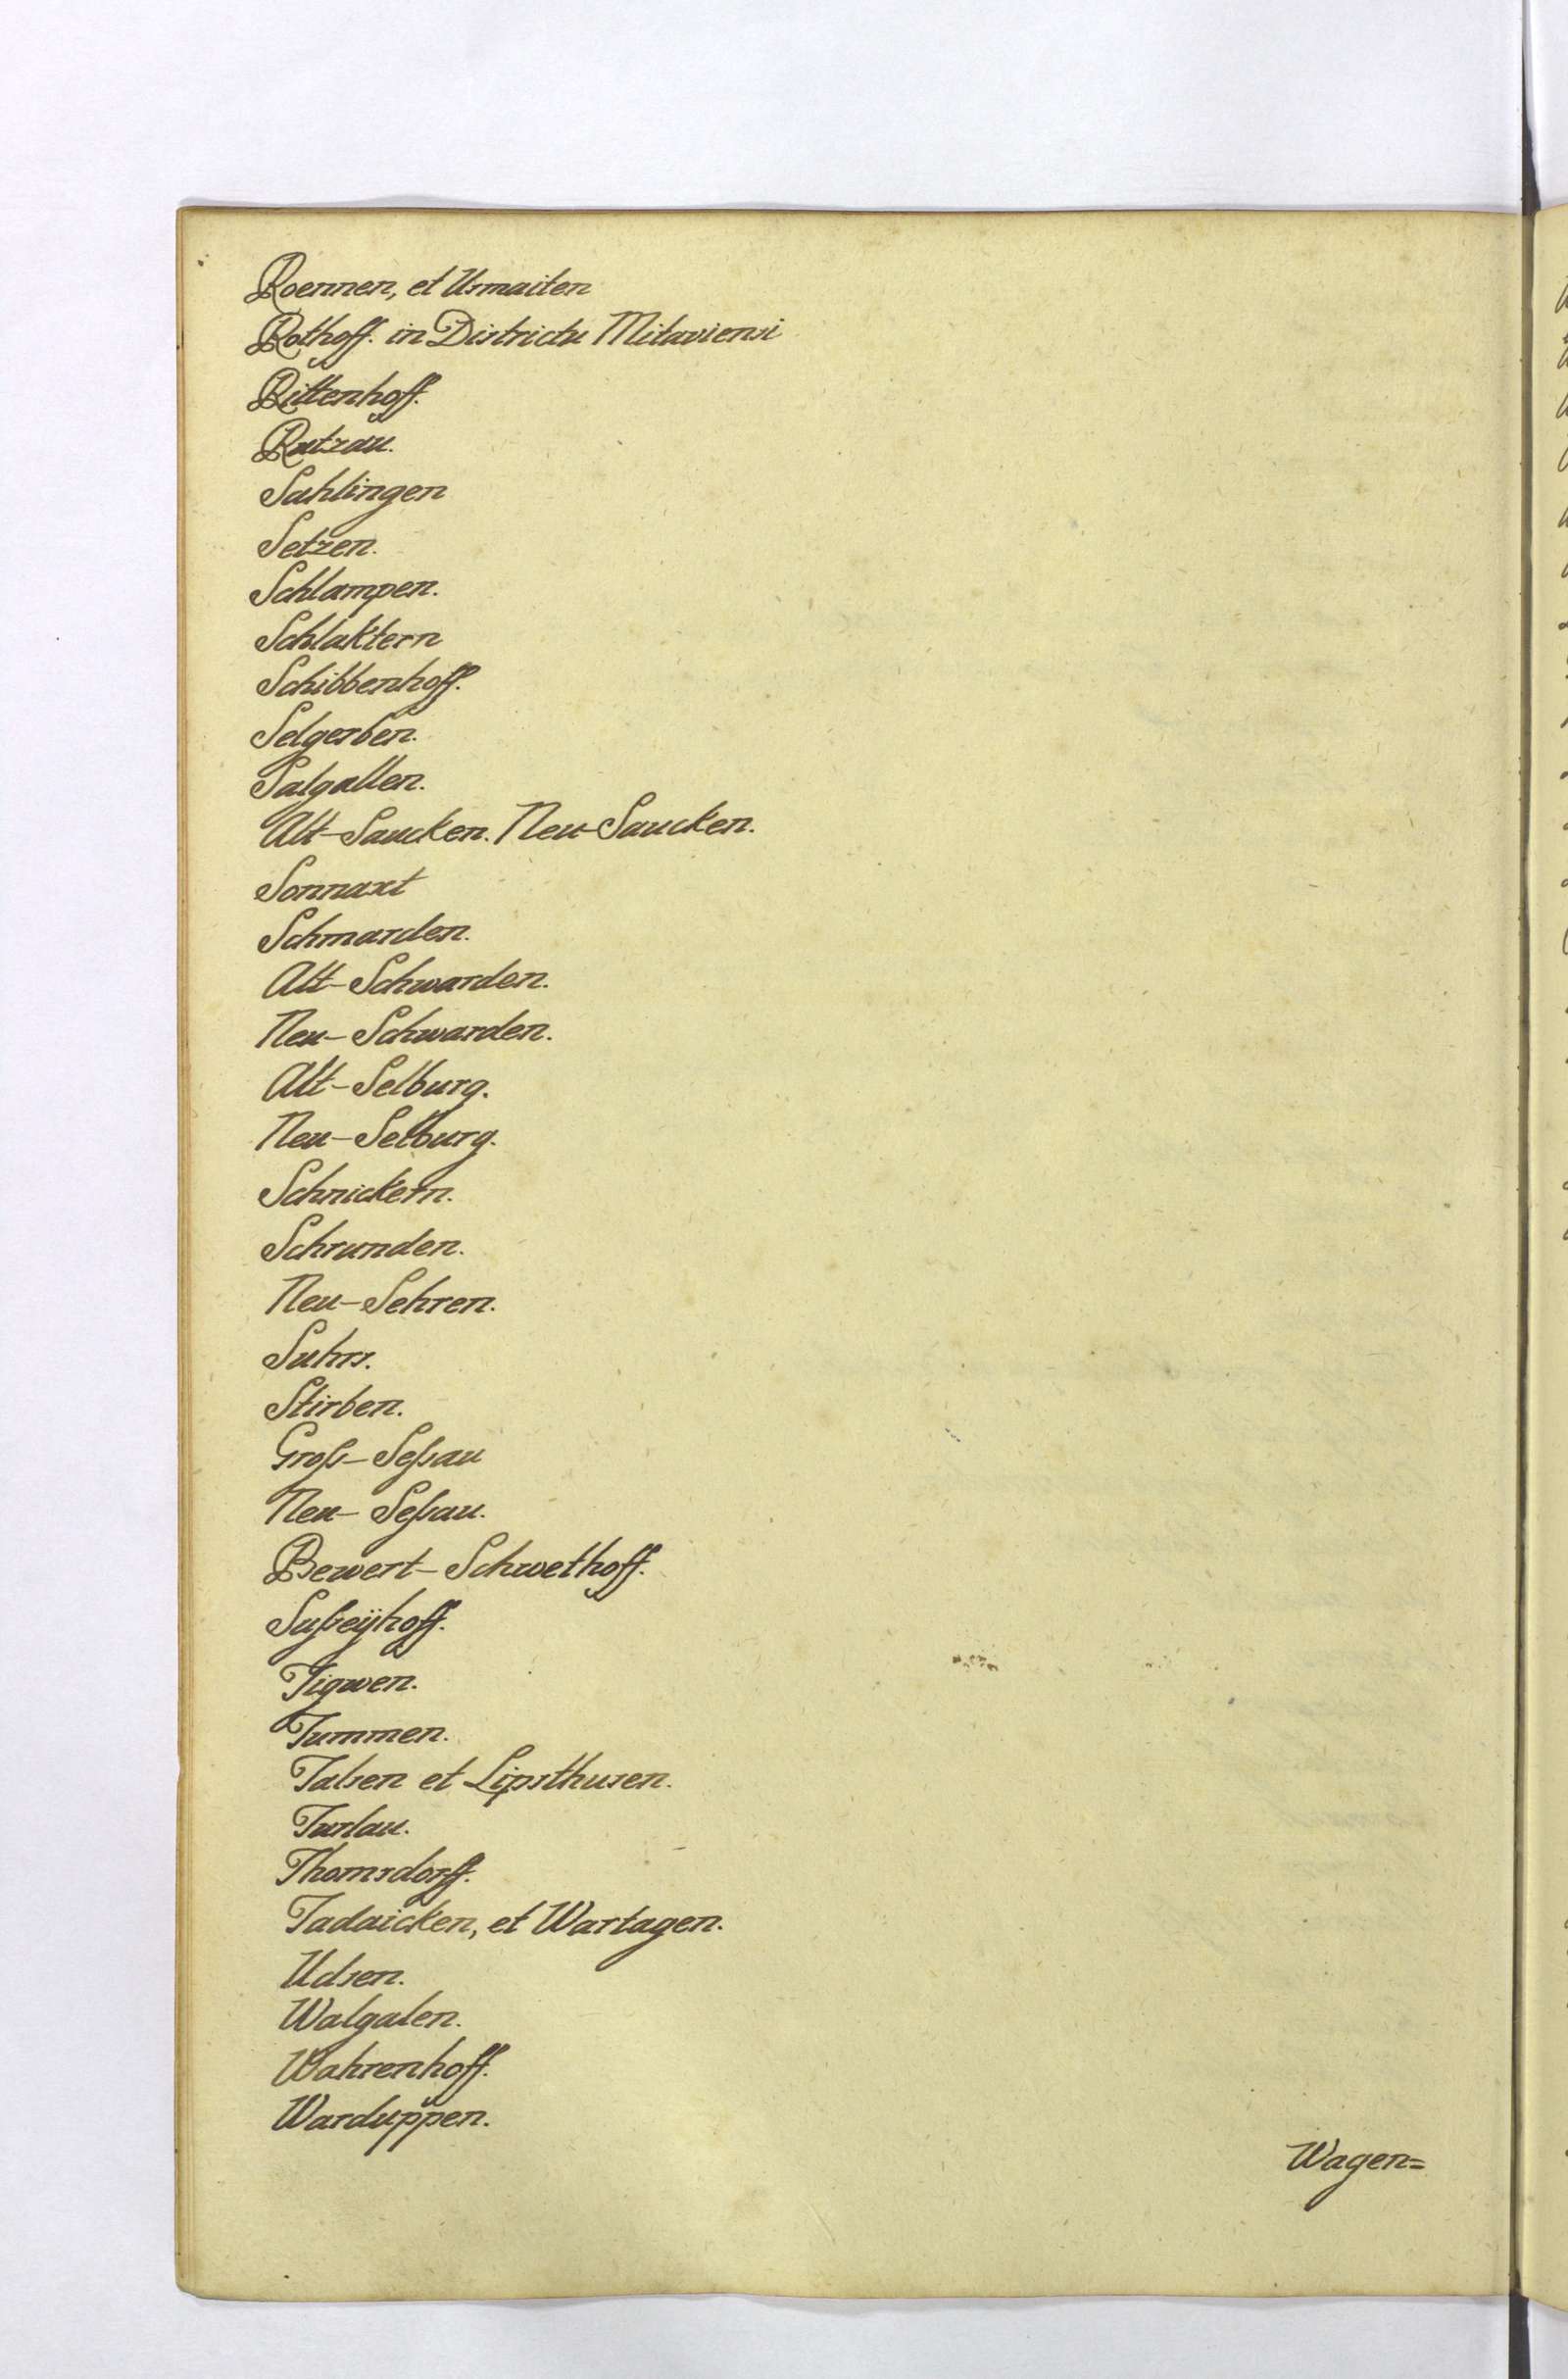 Roennen, et Usmaiten
Rothoff. in Districtu Mitaviensi
Rittenhoff.
Rutzau.
Sahlingen
Setzen.
Schlampen.
Schlaktern
Schibbenhoff.
Selgerben.
Salgallen.
Alt-Saucken. Neu-Saucken.
Sonnaxt
Schmarden.
Alt-Schwarden.
Neu-Schwarden.
Alt-Selburg.
Neu-Selburg.
Schnickern.
Schrunden.
Neu-Sehren.
Suhrs.
Stirben.
Groß-Seßau
Neu-Seßau.
Bewert-Schwethoff.
Sußeÿhoff.
Tigwen.
Tummen.
Talsen et Lipsthusen.
Turlau.
Thomsdorff.
Tadaicken, et Wartagen.
Udsen.
Walgalen.
Wahrenhoff.
Warduppen.
Wagen=